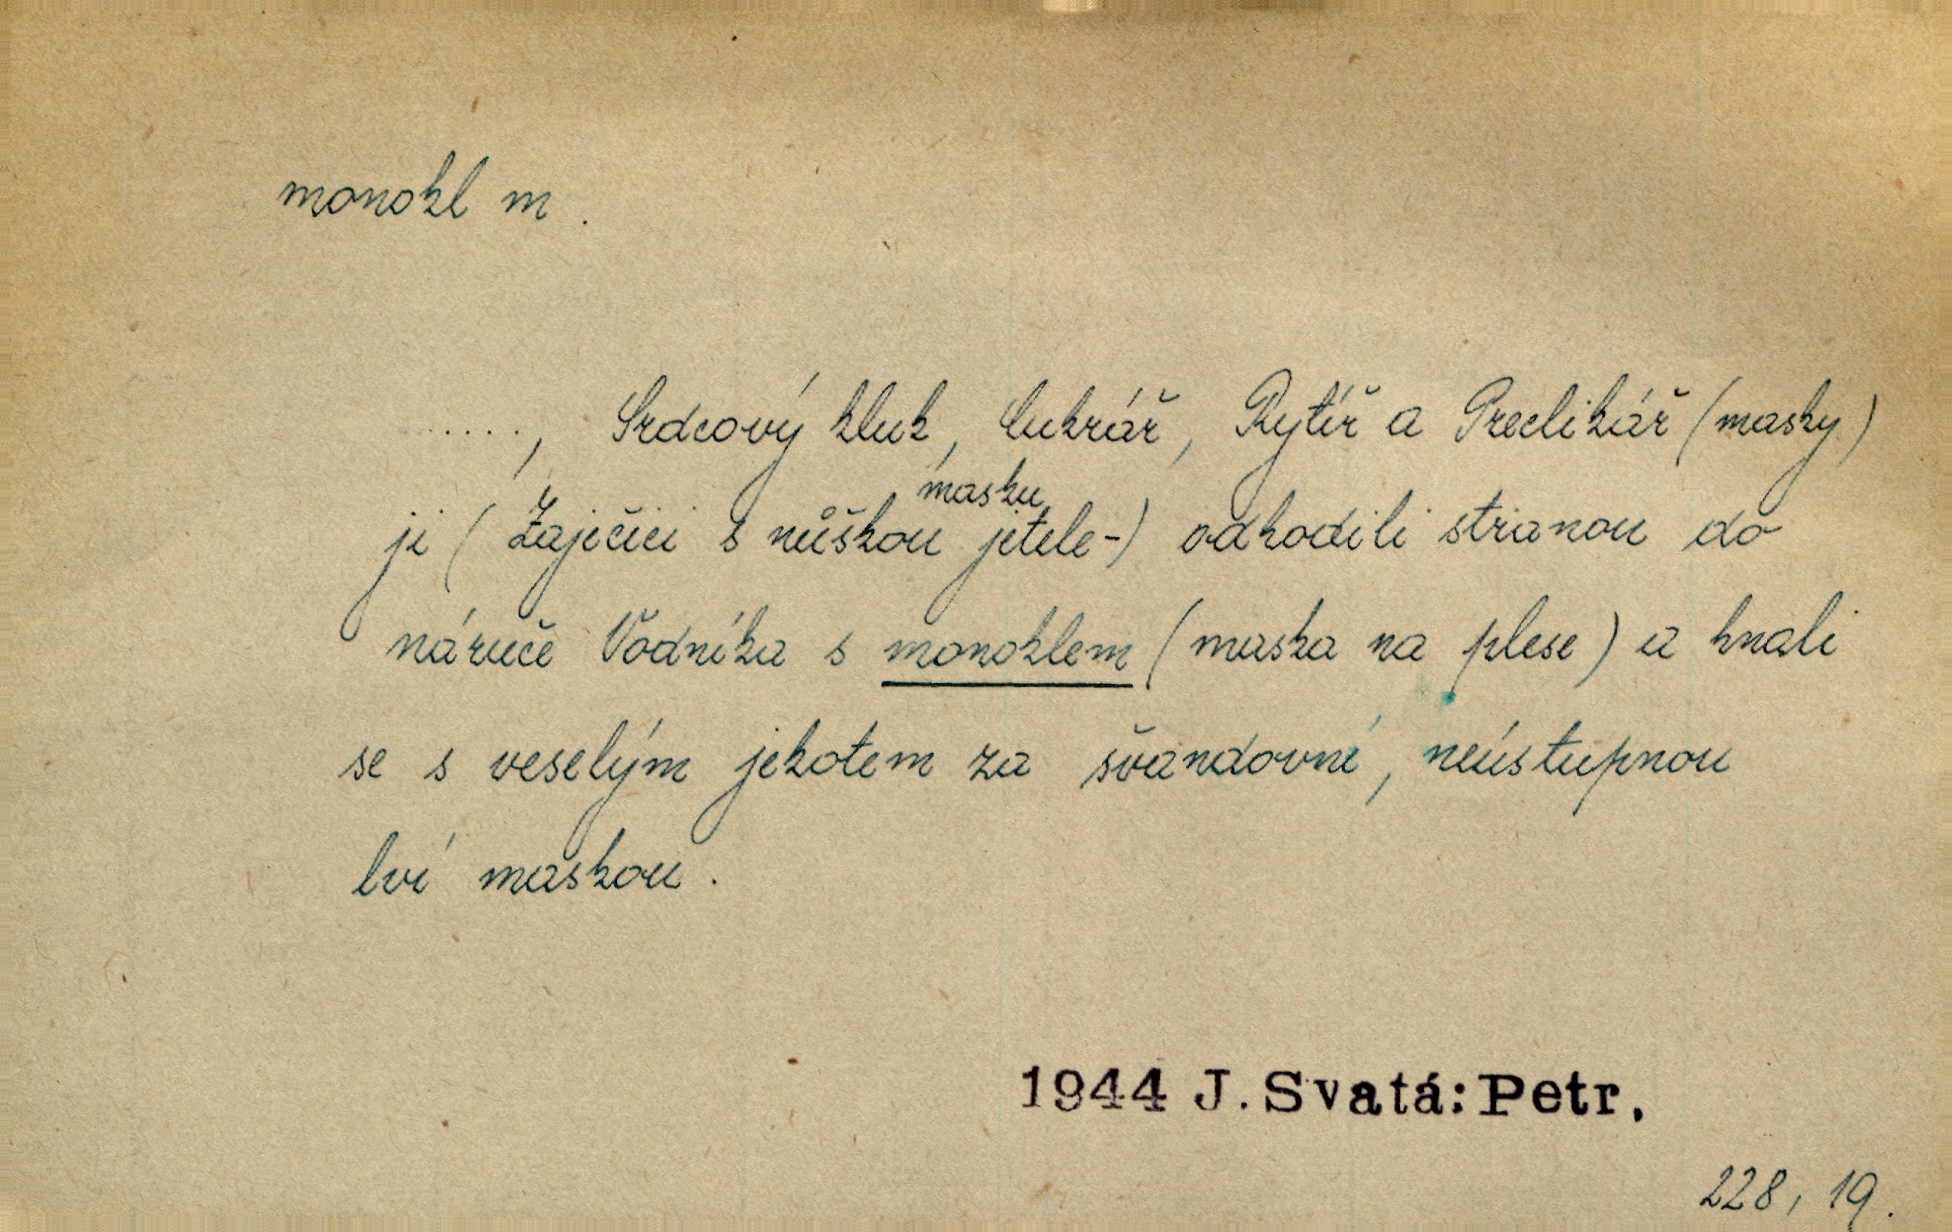 monokl m.
......, Srdcový kluk, Cukrář, Rytíř a Preclikář (masky)
masku
ji (Zaječici s nůškou jetele-) odhodili stranou do
náruče Vodníka s monoklem (maska na plese) a hnali
se s veselým jekotem za švandovní, neústupnou
lví maskou.
1944 J. Svatá: Petr.
228, 19.